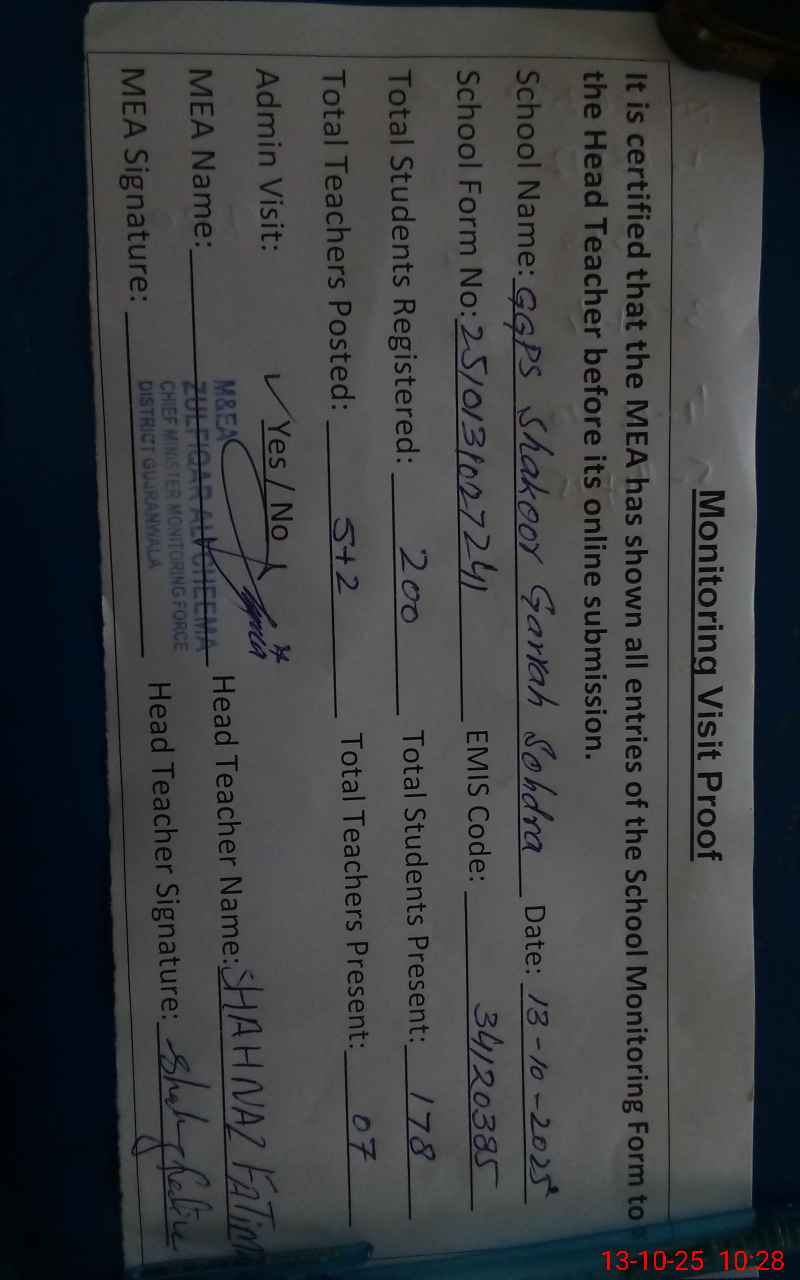 Monitoring Visit Proof
It is certified that the MEA has shown all entries of the School Monitoring Form to
the Head Teacher before its online submission.
School Name: GGPS Shakoor Garrah Sohdra Date: 13-10-2025
School Form No: 2510131027241 EMIS Code: 34120385
Total Students Registered: 200 Total Students Present: 178
Total Teachers Posted: 5+2 Total Teachers Present: 07
Admin Visit: ✓ Yes / No
MEA Name: M&EA ZULFIQAR ALI CHEEMA Head Teacher Name: SHAHNAZ FATIMA
CHIEF MINISTER MONITORING FORCE
DISTRICT GUJRANWALA
MEA Signature: Head Teacher Signature:
13-10-25 10:28